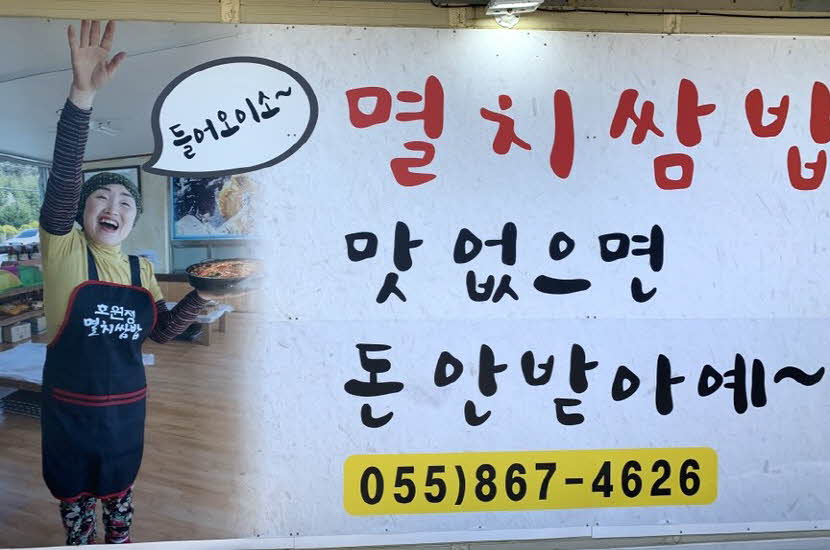 들어오이소~
멸치쌈밥
맛 없으면
돈 안받아예~
055)867-4626
호원정
멸치쌈밥